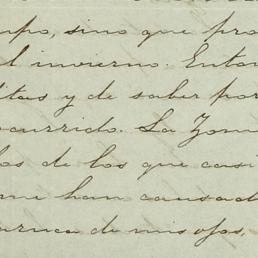 mpo, sino que pro
el invierno. Enton
ditas y de saber por
ocurrido. La Zom
los de los que casi
me han causad
de mis ojos,